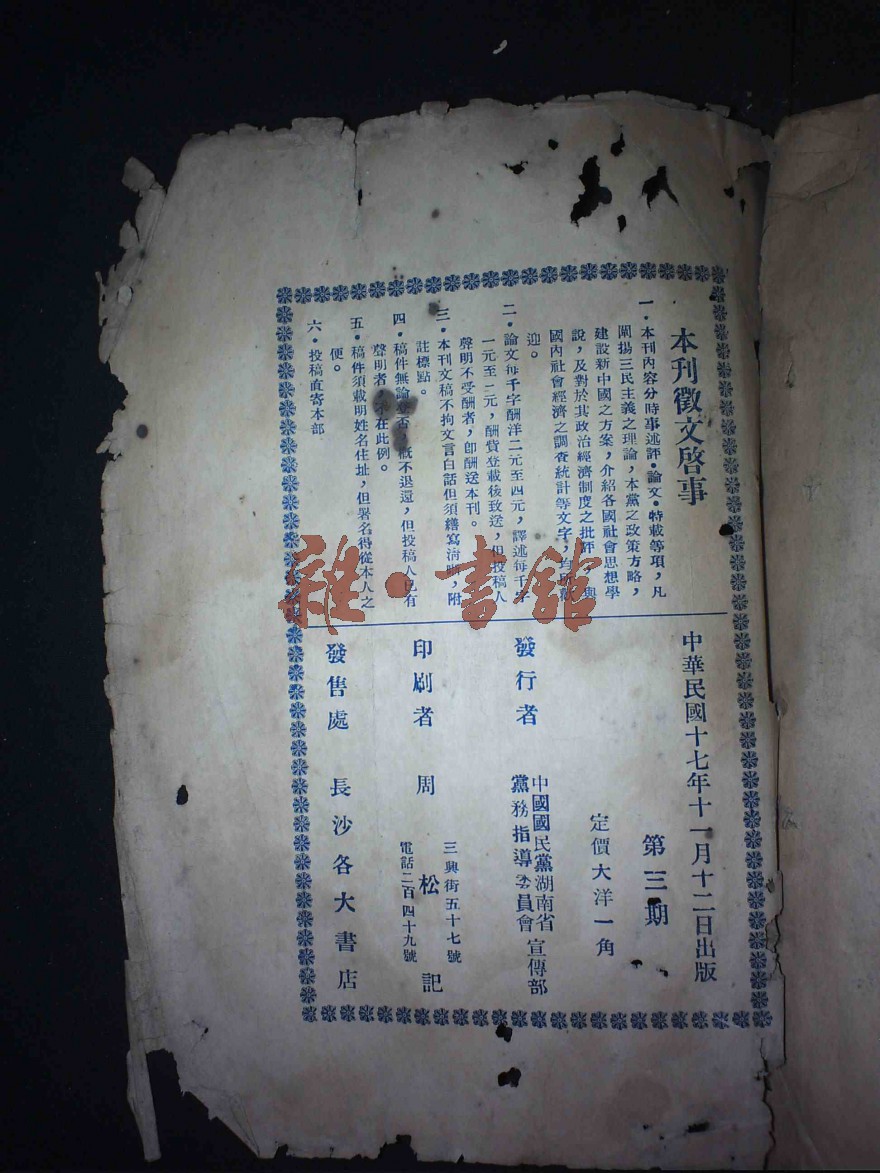 本刋徵文啓事
一．本刋內容分時事述評．論文．特載等項，凡
闡揚三民主義之理論，本黨之政策方略，
建設新中國之方案，介紹各國社會思想學
說，及對於其政治經濟制度之批評，與
國內社會經濟之調查統計等文字，均所歡
迎。
二．論文每千字酬洋二元至四元，譯述每千字
一元至二元，酬貲登載後致送，但投稿人
聲明不受酬者，卽酬送本刋。
三．本刋文稿不拘文言白話但須繕寫淸晰，附
註標點。
四．稿件無論登否，概不退還，但投稿人已有
聲明者，不在此例。
五．稿件須載明姓名住址，但署名得從本人之
便。
六．投稿直寄本部
中華民國十七年十一月十二日出版
第三期
定價大洋一角
發行者 中國國民黨湖南省黨務指導委員會宣傳部
印刷者 周松記
三興街五十七號
電話二百四十九號
發售處 長沙各大書店
雜·書館